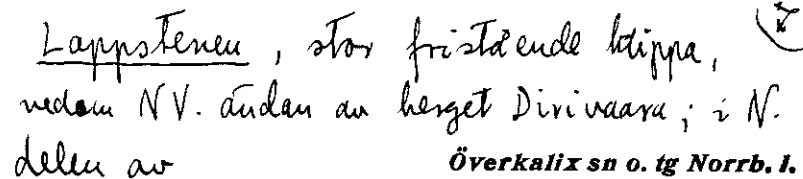 Lappstenen, stor fristående klippa,
nedom NV. ändan av berget Dirivaara; i N.
delen av Överkalix sn o. tg Norrb. l.